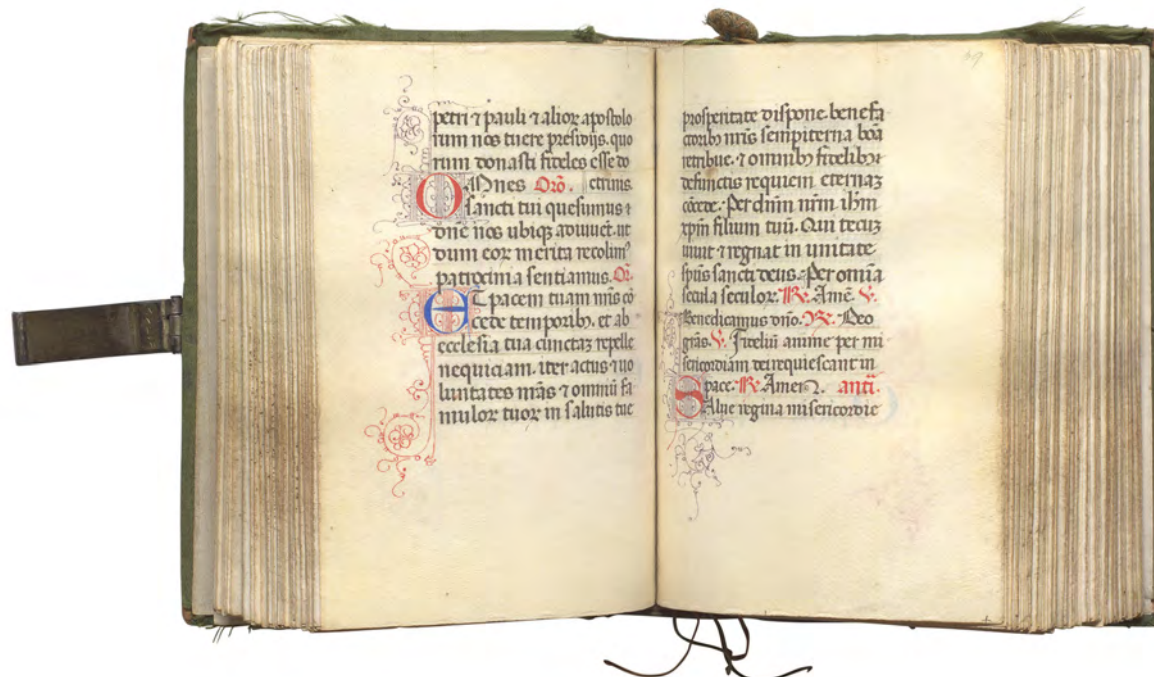 petri ⁊ pauli ⁊ alioꝝ apostolo
rum nos tuere presidijs. quo
rum donasti fideles esse do
OMnes Orõ. ctrinis.
sancti tui quesumus ⁊
dñe nos ubiqꝫ adiuuẽt. ut
dum eoꝝ merita recolimꝰ
patrocinia sentiamus. Oñ.
ET pacem tuam nr̃is cõ
cede temporibꝫ. et ab
ecclesia tua cunctaꝫ repelle
nequiciam. iter actus ⁊ uo
luntates nr̃as ⁊ omniũ fa
muloꝝ tuoꝝ in salutis tue
prosperitate dispone. benefa
ctoribꝫ nr̃is sempiterna bõa
retribue. ⁊ omnibꝫ fidelibꝫ
defunctis requiem eternaꝫ
cõcede. Per dñm nr̃m ihm̃
xpm̃ filium tuũ. Qui tecuꝫ
uiuit ⁊ regnat in unitate
spũs sancti deus. Per omĩa
secula seculoꝝ. ℟. Amẽ. ℣.
Benedicamus dño. ℟. Deo
grãs. ℣. Fideliũ anime per mi
sericordiam dei requiescant in
pace. ℟. Amen. antĩ.
SAlue regina misericordie